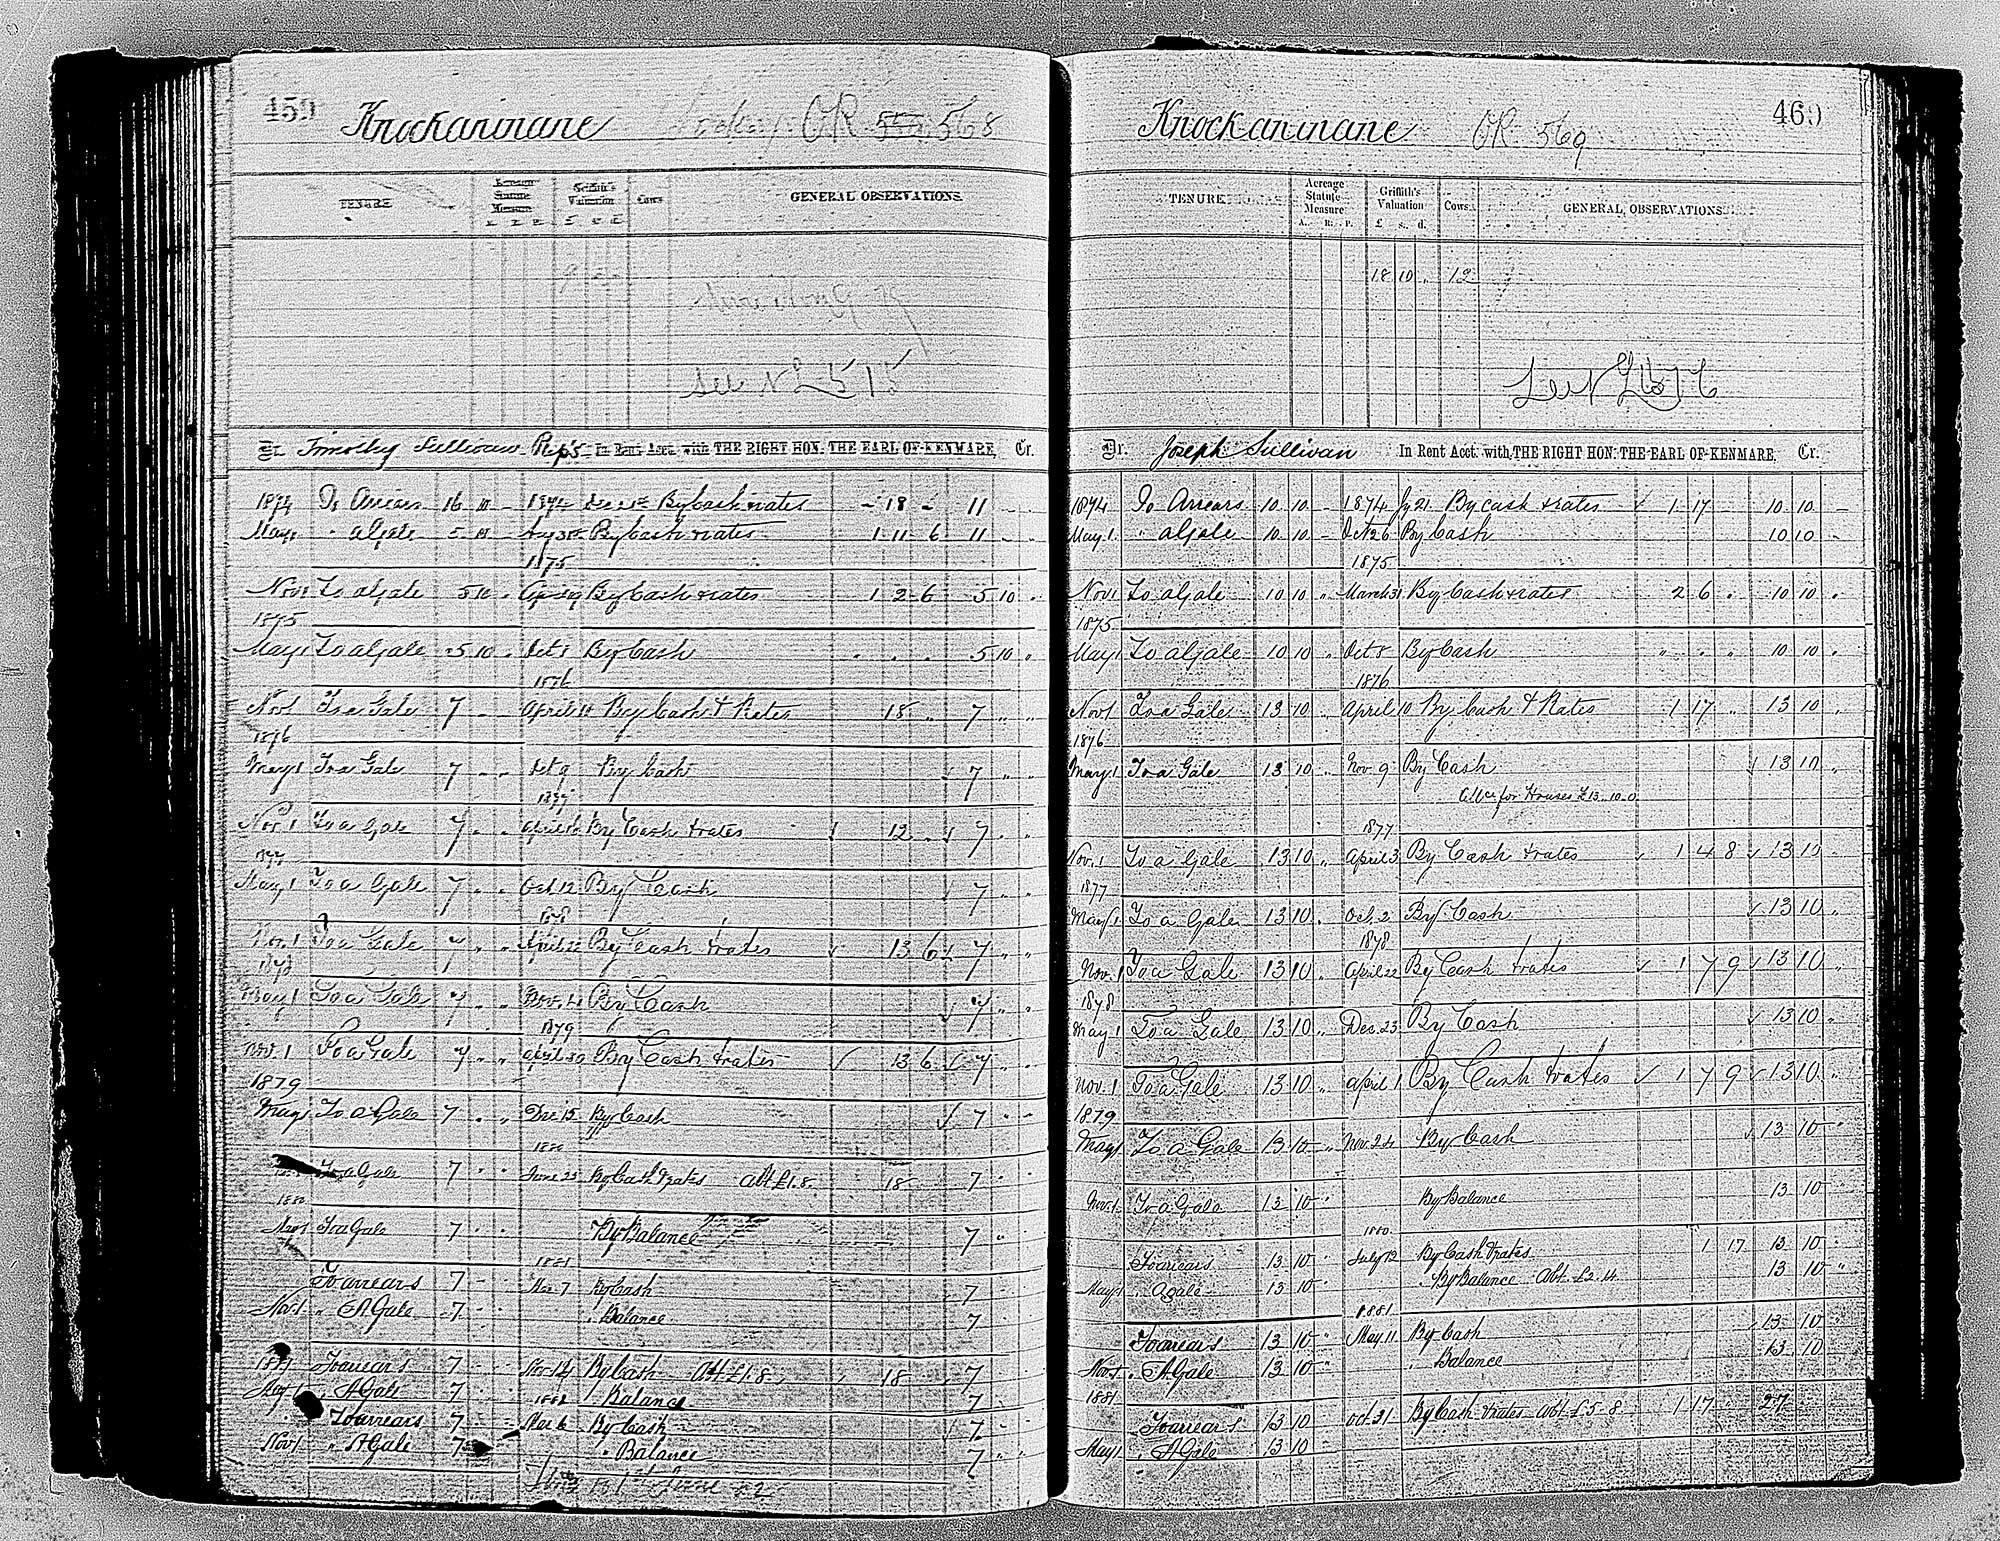 459 Knockaninane OR 568
TENURE Acreage Statute Measure Griffith's Valuation £ s. d. Cows GENERAL OBSERVATIONS
See N L 515
Dr. Timothy Sullivan Rep's In Rent Acct. with THE RIGHT HON: THE EARL OF KENMARE, Cr.
1874 To Arrears 16 10 - 1874 By Cash & rates - 18 - 11 - -
May 1 " a Gale 5 10 - By Cash & rates 1 11 6 11 - -
1875
Nov 1 To a Gale 5 10 - By Cash & rates 1 2 6 5 10 "
1875
May 1 To a Gale 5 10 - Oct 8 By Cash " " " 5 10 "
1876
Nov 1 To a Gale 7 - - April 10 By Cash & Rates 18 " 7 " "
1876
May 1 To a Gale 7 - - Oct 9 By Cash 7 " "
1877
Nov. 1 To a Gale 7 " " By Cash & rates 12 " 7 " "
1877
May 1 To a Gale 7 " " Oct 12 By Cash 7 " "
1878
Nov. 1 To a Gale 7 " " April 22 By Cash & rates 13 6 7 " "
1878
May 1 To a Gale 7 " " By Cash 7 " "
1879
Nov. 1 To a Gale 7 " " April 30 By Cash & rates 13 6 7 " "
1879
May 1 To a Gale 7 " " Dec 15 By Cash 7 " "
1880
To a Gale 7 " " June 25 By Cash & rates Abt £1.8. 18 7 "
1880
May 1 To a Gale 7 " " By Balance 7 "
1881
To arrears 7 - Mar 7 By Cash 7
Nov 1 " A Gale 7 " " " Balance 7
1881 To arrears 7 - Nov 14 By Cash Abt £1.8. 18 7
May 1 " A Gale 7 1882 Balance 7
To arrears 7 Mar 6 By Cash 7
Nov 1 " A Gale 7 " Balance 7
June 82
Knockaninane OR 569 460
TENURE Acreage Statute Measure A. R. P. Griffith's Valuation £ s. d. Cows. GENERAL OBSERVATIONS
18 10 " 12
See N L 516
Dr. Joseph Sullivan In Rent Acct. with THE RIGHT HON: THE EARL OF KENMARE, Cr.
1874 To Arrears 10 10 - 1874 Jy 21 By cash & rates 1 17 10 10 -
May 1. " a Gale 10 10 - Oct 26 By Cash 10 10 -
1875
Nov 1 To a Gale 10 10 " March 31 By Cash & rates 2 6 " 10 10 "
1875
May 1 To a Gale 10 10 " Oct 8 By Cash " " " 10 10 "
1876
Nov 1 To a Gale 13 10 " April 10 By Cash & Rates 1 17 " 13 10 "
1876
May 1 To a Gale 13 10 " Nov. 9 By Cash 13 10 "
Allce for Houses £13..10..0
1877
Nov. 1 To a Gale 13 10 " April 3 By Cash & rates 1 4 8 13 10 "
1877
May 1 To a Gale 13 10 " Oct. 2 By Cash 13 10 "
1878
Nov. 1 To a Gale 13 10 " April 22 By Cash & rates 1 7 9 13 10 "
1878
May 1 To a Gale 13 10 " Dec. 23 By Cash 13 10 "
Nov. 1 To a Gale 13 10 " April 1 By Cash & rates 1 7 9 13 10 "
1879
May 1 To a Gale 13 10 " Nov. 24 By Cash 13 10 "
Nov. 1 To a Gale 13 10 " By Balance 13 10
1880.
To arrears 13 10 " July 12 By Cash & rates 1 17 13 10 "
May 1 " a gale 13 10 " " By Balance Abt £2.14 13 10 "
1881
To arrears 13 10 " May 11 By Cash 13 10 "
Nov 1 " A Gale 13 10 " " Balance 13 10
1881
To arrears 13 10 Oct. 31 By Cash & rates Abt £5-8 1 17 " 27
May 1 " A Gale 13 10